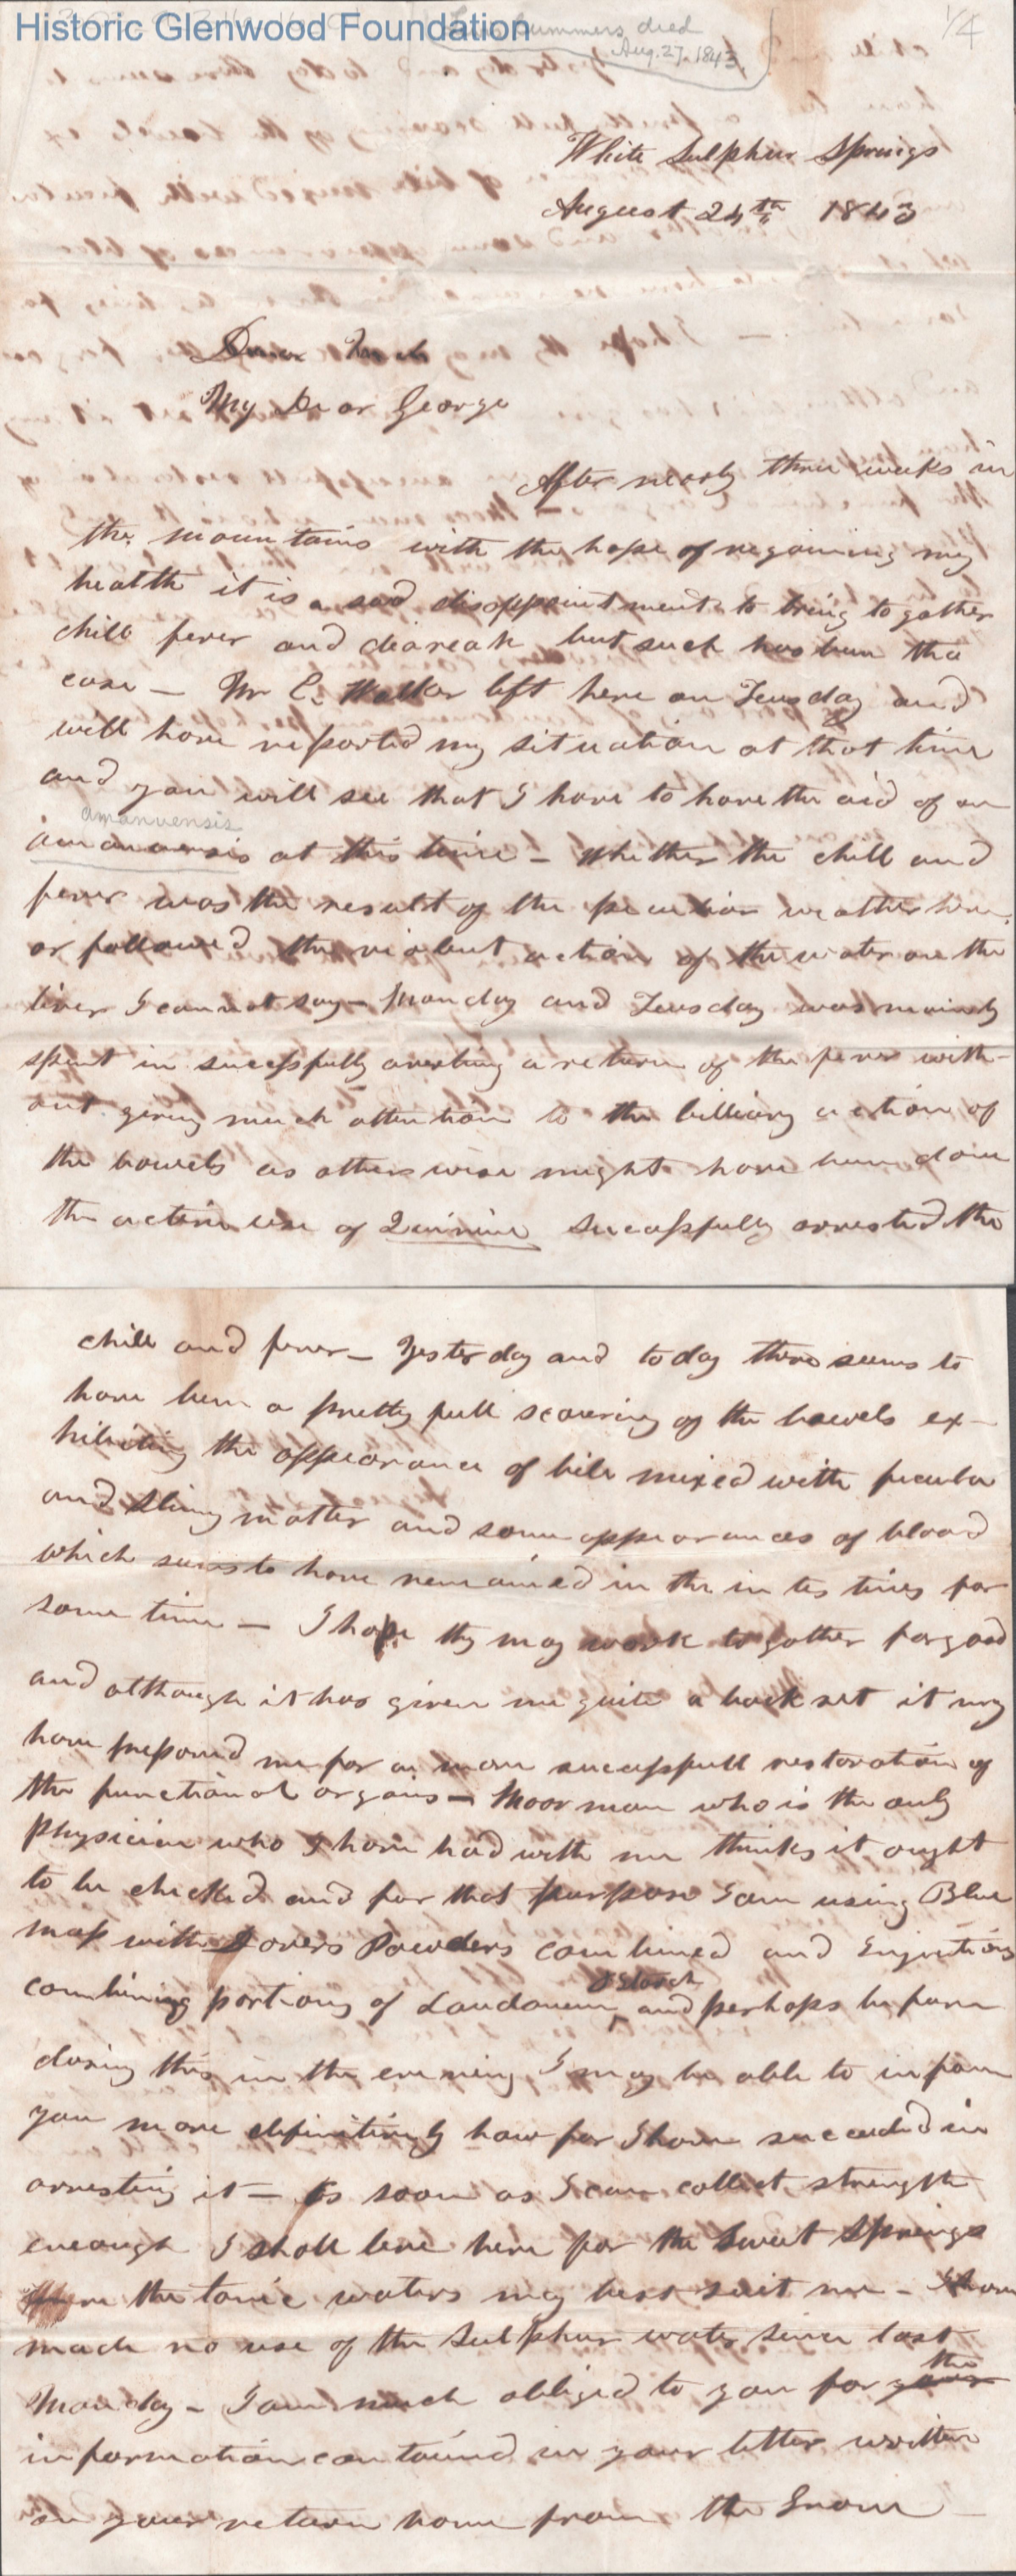 Historic Glenwood Foundation
Summers died
Aug. 27. 1843
1/4
White Sulphur Springs
August 24th 1843
Dear
My Dear George
After nearly three weeks in
the mountains with the hope of regaining my
health it is a sad disappointment to bring together
chill fever and diareah but such has been the
case — Mr C. Walker left here on Teusday and
will have reported my situation at that time
and you will see that I have to have the aid of an
amanuensis
at this time — Whether the chill and
fever was the result of the peculiar weather here
or followed the violent action of the water on the
liver I cannot say — Monday and Teusday was mainly
spent in sucessfully aresting a return of the fever with-
out giving much attention to the billiary action of
the bowels as otherwise might have been done
the active use of Quinine sucessfully arrested the
chill and fever — Yesterday and today there seems to
have been a pretty full scouring of the bowels ex-
hibiting the appearance of bile mixed with
and Slimy matter and some appearances of blood
which seems to have remained in the intestines for
some time — I hope thy may work togather for good
and although it has given me quite a back set it may
have prepared me for a more sucessfull restoration of
the functional organs — Moorman who is the only
Physician who I have had with me thinks it ought
to be checked and for that purpose I am using Blue
mass with Dovers Powders combined and Enjections
combining portions of Laudanum and perhaps before
& Starch
closing this in the evening I may be able to inform
you more definitively how far I have succeeded in
arresting it — As soon as I can collect strength
enough I shall leve here for the Sweet Springs
the tonic waters may best suit me — I have
made no use of the Sulphur water since last
Monday — I am much obliged to you for your
the
information contained in your letter written
on your return home from the Grove —